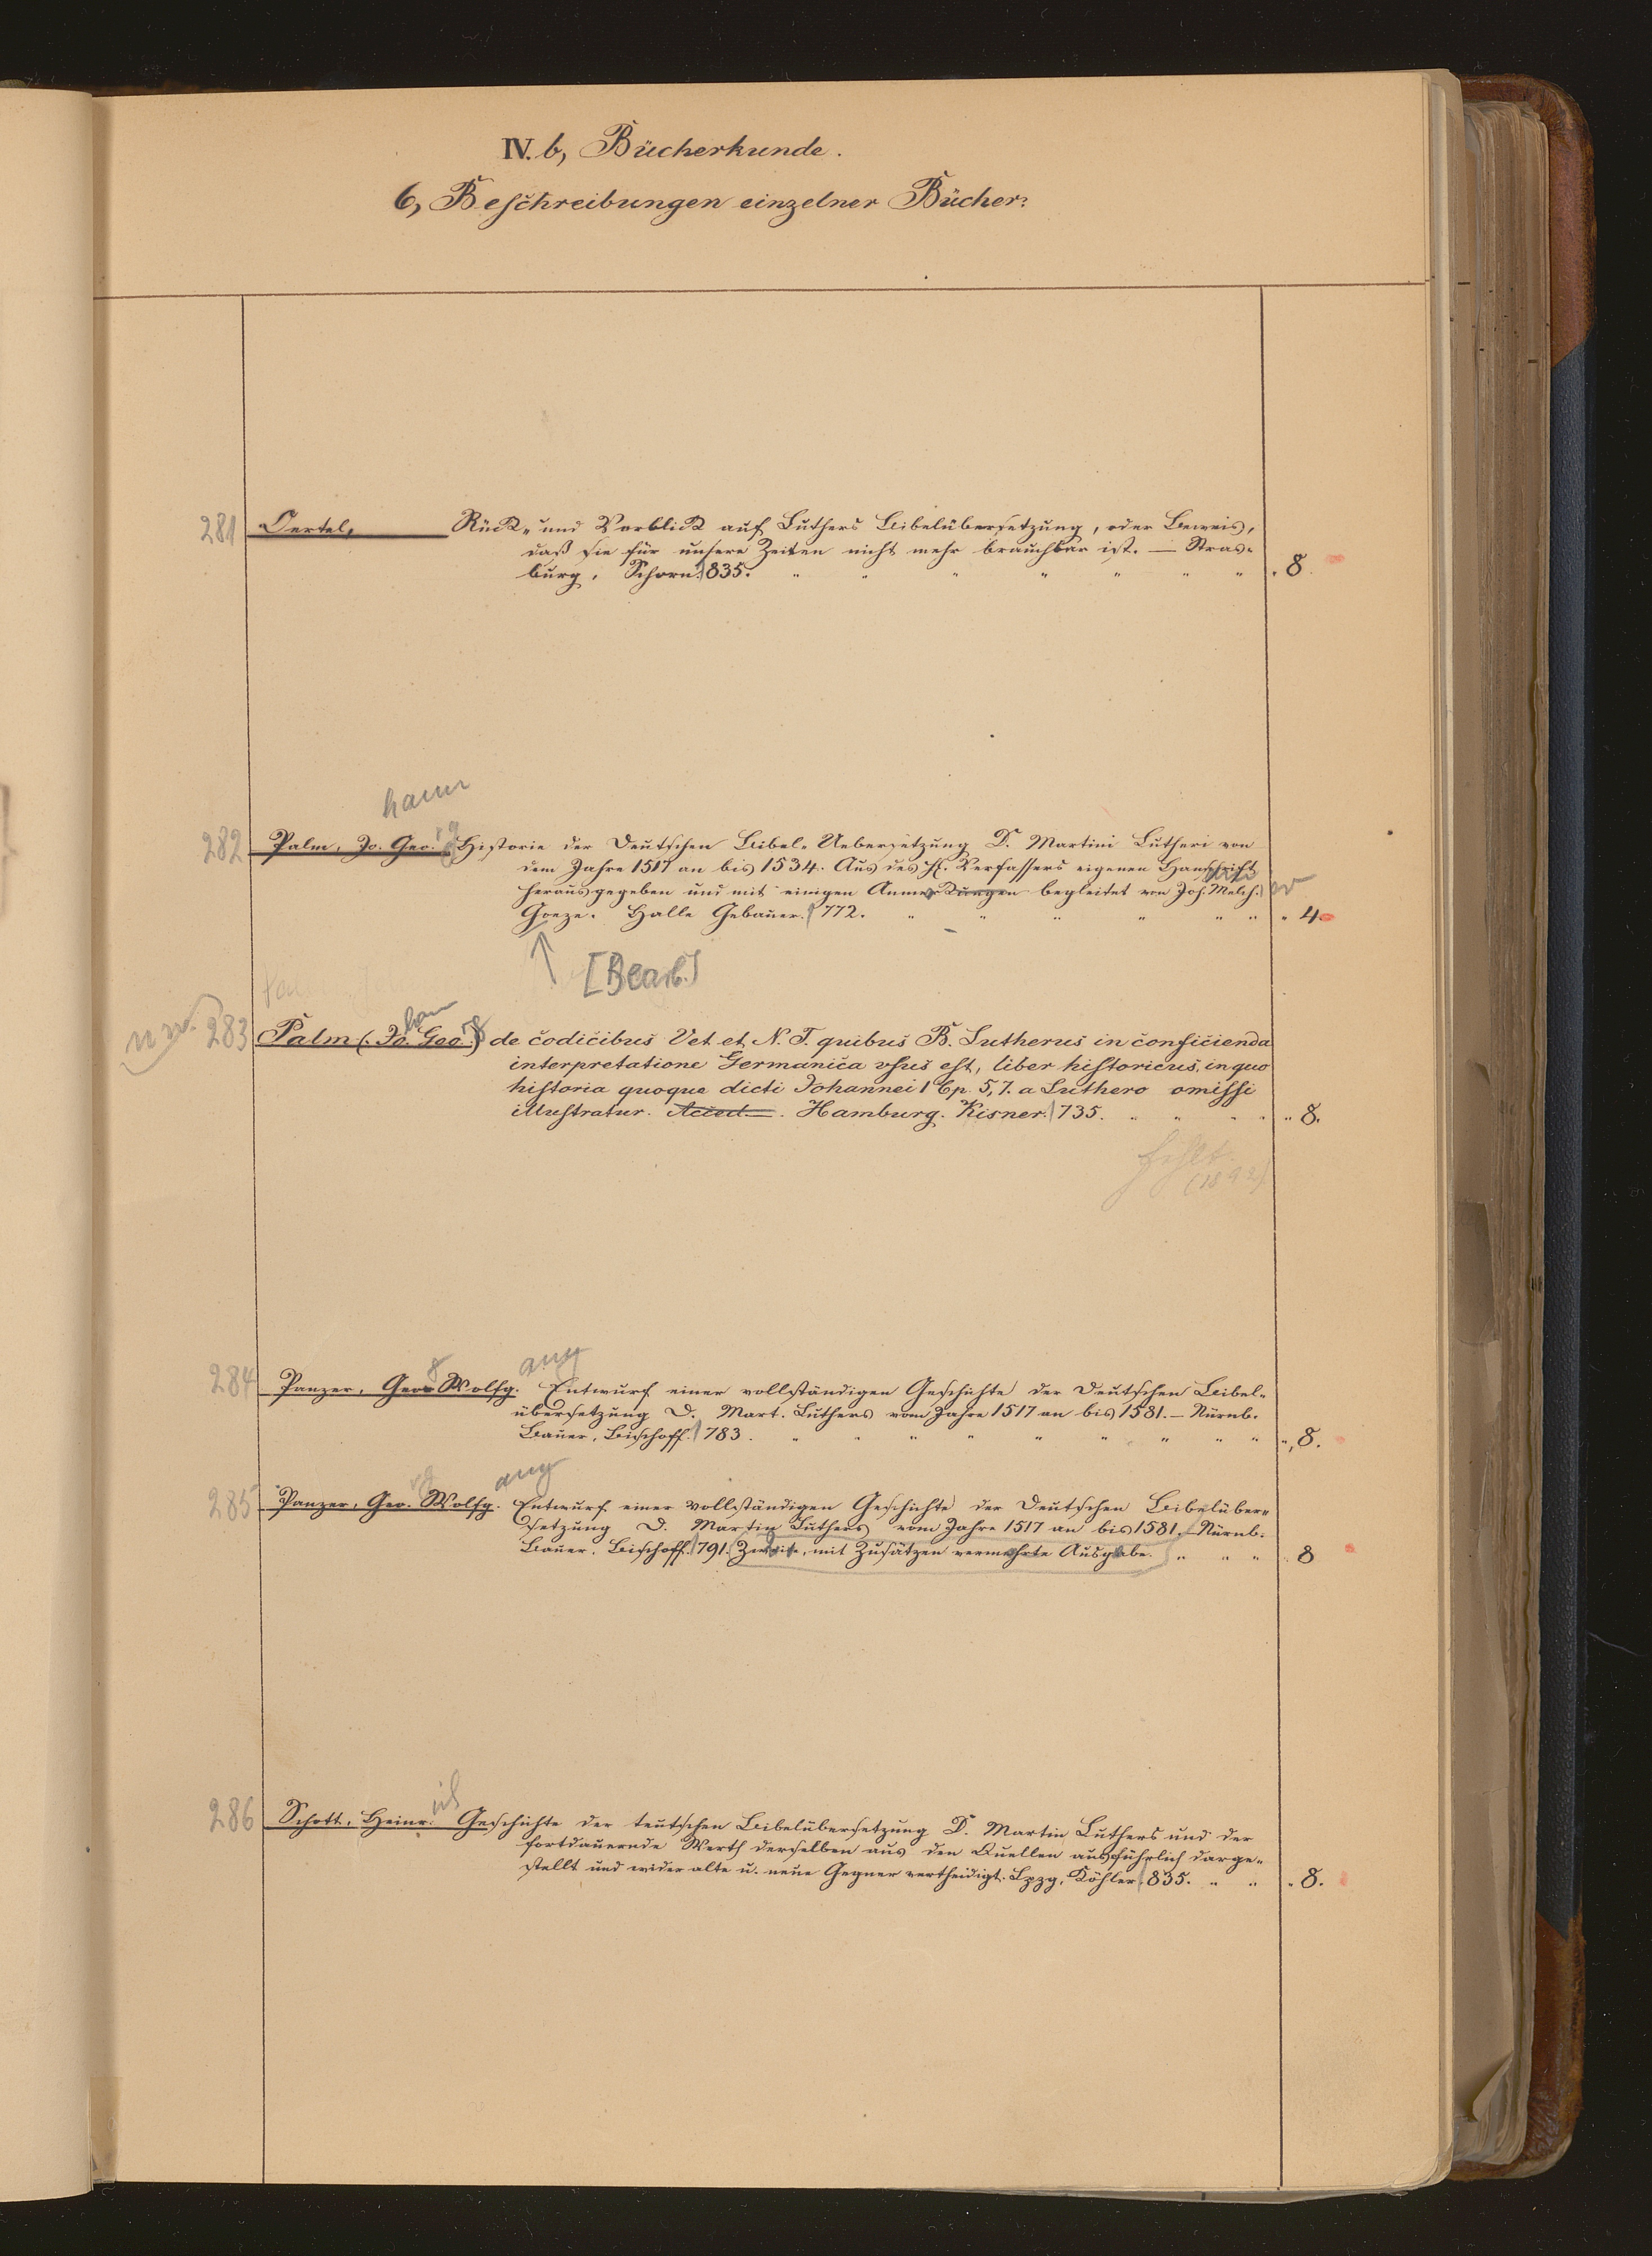 IV. b, Bücherkunde.
6, Beschreibungen einzelner Bücher.
281 Oertel, Rück- und Vorblick auf Luthers Bibelübersetzung, oder Beweis,
daß sie für unsere Zeiten nicht mehr brauchbar ist. — Stras-
burg, Schorn. 835. " " " " " " " 8.
hann
282 Palm, Jo. Geo. rg Historie der Deutschen Bibel-Uebersetzung D. Martini Lutheri von
dem Jahre 1517 an bis 1534. Aus des H. Verfassers eigenen Handschrift
herausgegeben und mit einigen Anmerkungen begleitet von Joh. Melch. or
Goeze. Halle Gebauer. 772. " " " " " " " 4.
[Bearb.]
han
n. w. 283 Palm (Jo. Geo. rg) de codicibus Vet. et N. T. quibus B. Lutherus in conficienda
interpretatione Germanica vsus est, liber historicus, in quo
historia quoque dicti Johannei 1 Ep. 5, 7. a Luthero omissi
illustratur. Hamburg. Kisner. 735. " " " " " 8.
fehlt.
(1892)
ang
284 Panzer, Georg Wolfg. Entwurf einer vollständigen Geschichte der Deutschen Bibel-
übersetzung D. Mart. Luthers vom Jahre 1517 an bis 1581. — Nürnb.
Bauer, Bischoff. 783. " " " " " " " " " " 8.
rg ang
285 Panzer, Geo. Wolfg. Entwurf einer vollständigen Geschichte der Deutschen Bibelüber-
setzung D. Martin Luthers vom Jahre 1517 an bis 1581. — Nürnb.
Bauer. Bischoff. 791. Zweite, mit Zusätzen vermehrte Ausgabe. " " " 8
ich
286 Schott, Heinr. Geschichte der teutschen Bibelübersetzung D. Martin Luthers und der
fortdauernde Werth derselben aus den Quellen ausführlich darge-
stellt und wider alte u. neue Gegner vertheidigt. Lpzg, Köhler. 835. " " " 8.